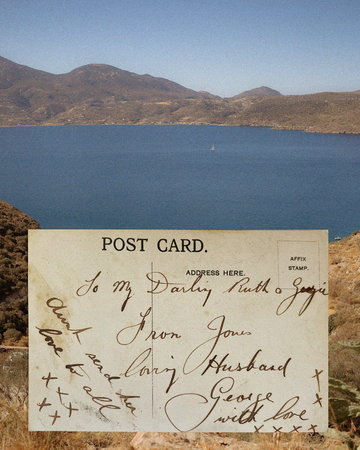 POST CARD.
AFFIX
STAMP.
ADDRESS HERE.
To My Darling Ruth &
From Jones
loving Husband
George
with love
x x x x x
Aunt send her
love to all
x x x x x